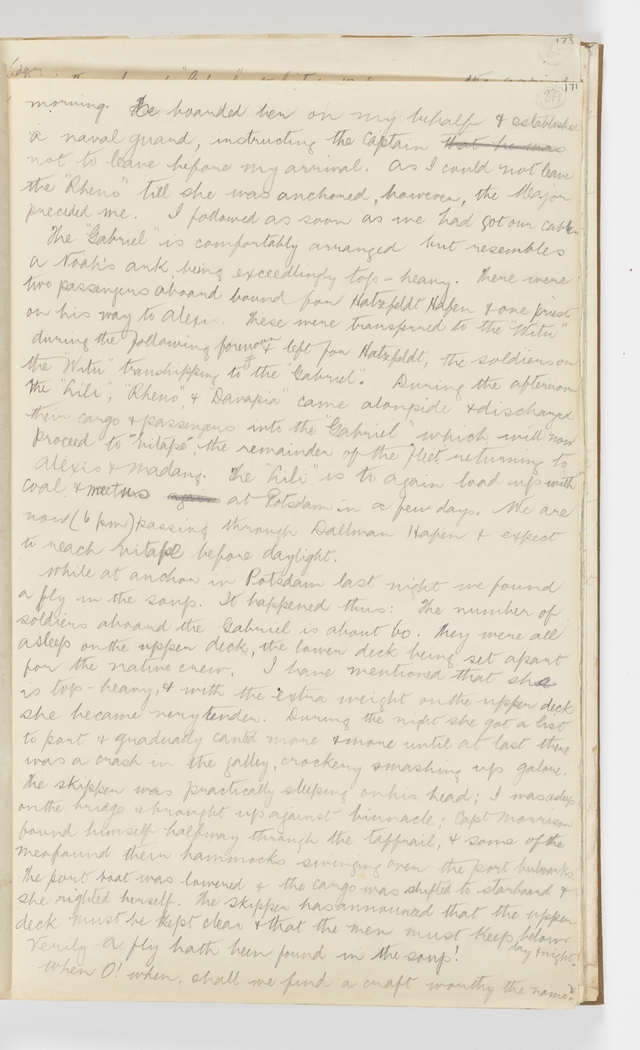 173
171
morning. He boarded her on my behalf & established
a naval guard, instructing the Captain that he was
not to leave before my arrival. As I could not leave
the "Rheno" till she was anchored, however, the Major
preceded me. I followed as soon as we had got our cable
The "Gabriel" is comfortably arranged but resembles
a Noah's ark, being exceedingly top-heavy. There were
two passengers aboard bound for Hatzfeldt Hafen & one priest
on his way to Alexis. These were transferred to the "Witu"
during the following forenoon & left for Hatzfeldt, the soldiers on
the "Witu" transhipping to the "Gabriel". During the afternoon
the "Lili", "Rheno", & "Davapia" came alongside & discharged
their cargo & passengers into the "Gabriel" which will now
proceed to "Eitape", the remainder of the fleet returning to
Alexis & Madang. The "Lili" is to again load up with
coal & meet us again at Potsdam in a few days. We are
now (6 pm) passing through Dallman Hafen & expect
to reach Eitape before daylight.
While at anchor in Potsdam last night we found
a fly in the soup. It happened thus: The number of
soldiers aboard the Gabriel is about 60. They were all
asleep on the upper deck, the lower deck being set apart
for the native crew. I have mentioned that she
is top-heavy, & with the extra weight on the upper deck
she became very tender. During the night she got a list
to port & gradually canted more & more until at last there
was a crash in the galley, crockery smashing up galore.
The skipper was practically sleeping on his head; I was asleep
on the bridge & brought up against binnacle; Capt Morrison
found himself halfway through the taffrail, & some of the
men found their hammocks swinging over the port bulwarks.
The port boat was lowered & the cargo was shifted to starboard &
she righted herself. The skipper has announced that the upper
deck must be kept clear & that the men must keep below
day & night.
Verily a fly hath been found in the soup!
When O! when, shall we find a craft worthy the name?